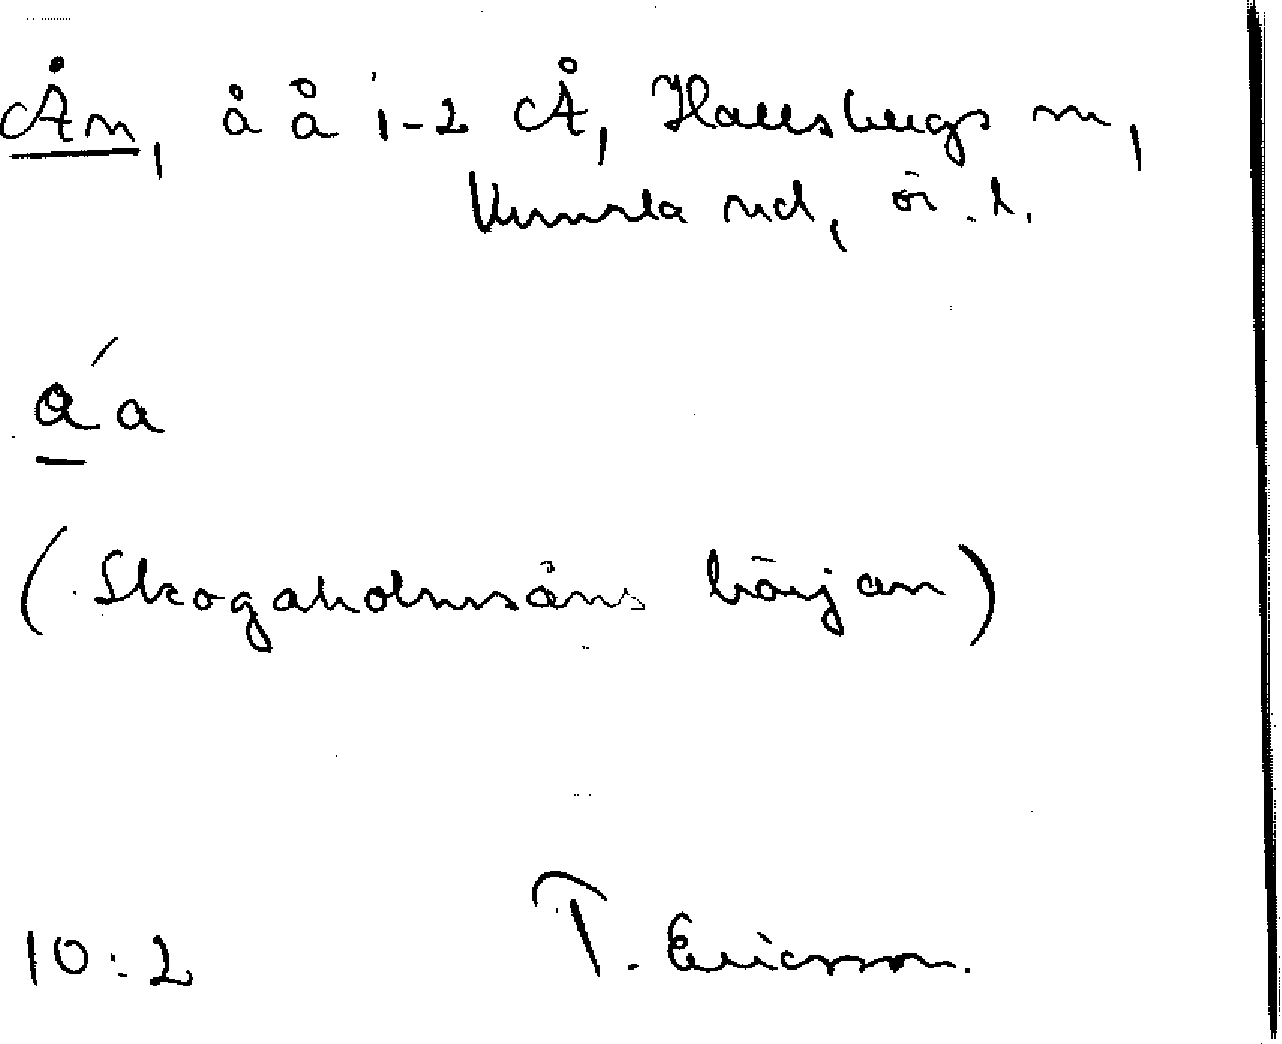 Ån, å å 1-2 Å, Hallsbergs m,
Kumla sd, ö. l.
a´a
(Skogaholmsåns början)
10:2 T. Ericsson.